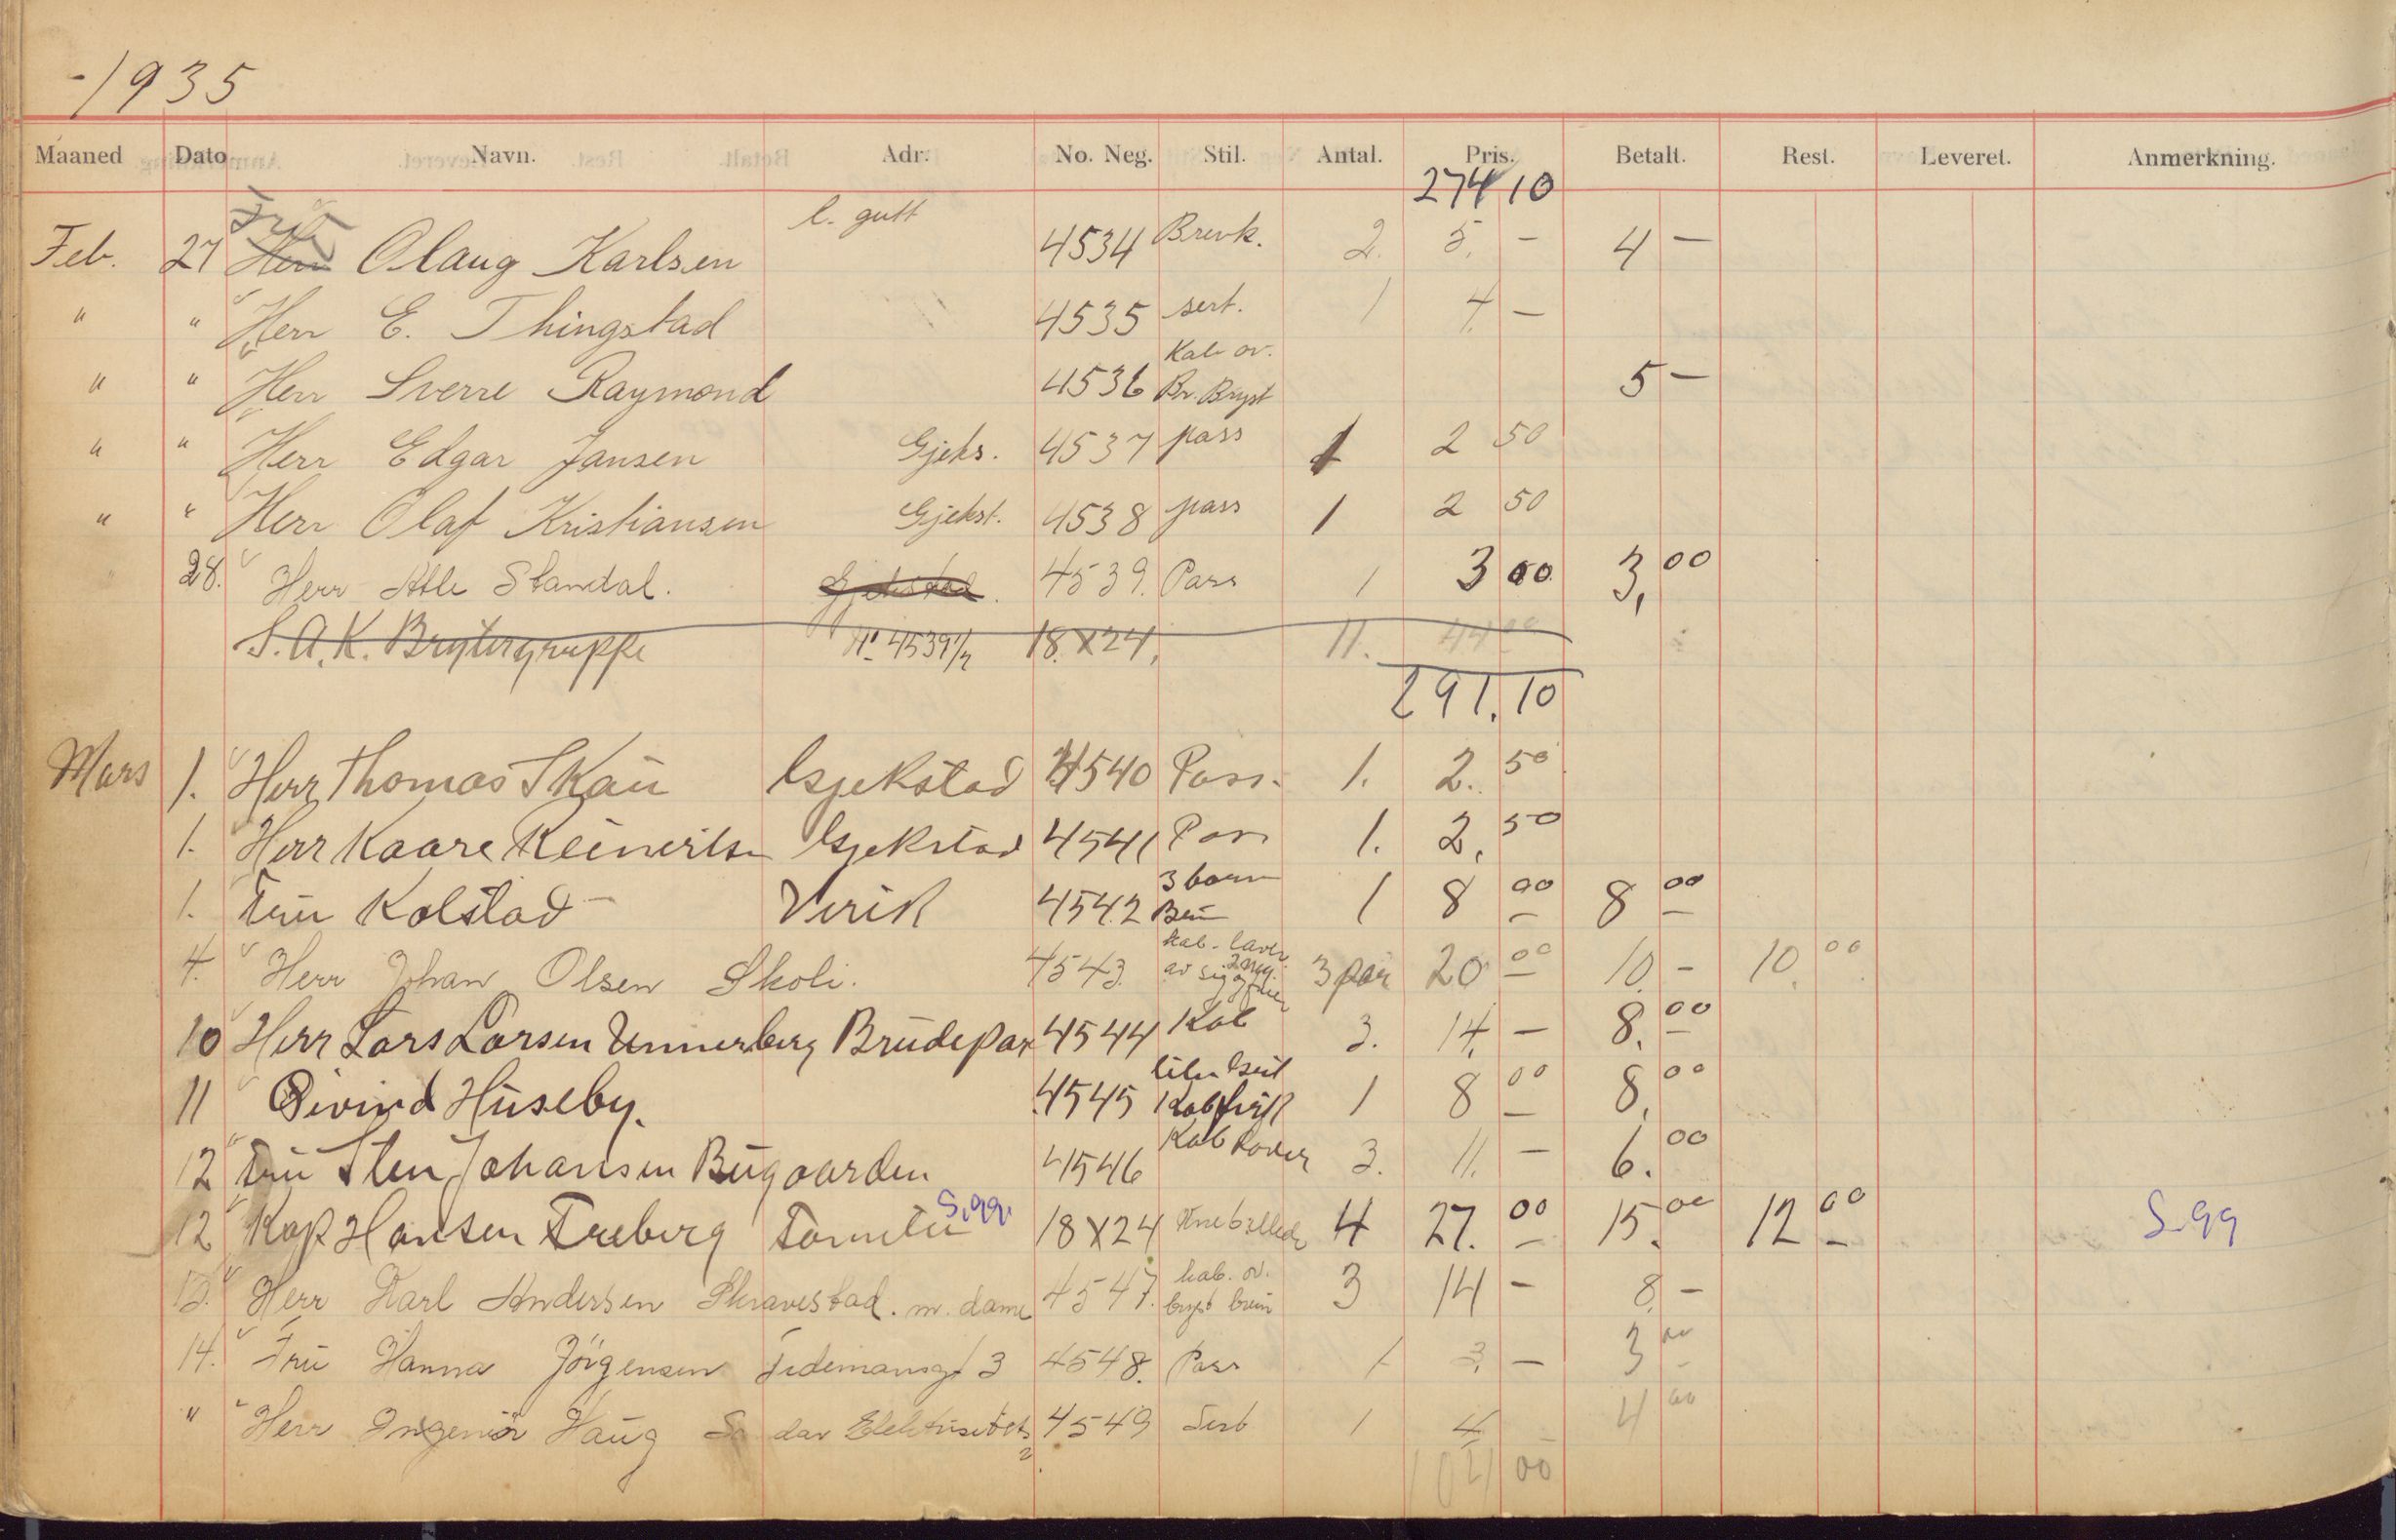 -1935
Maaned Dato Navn. Adr. No. Neg. Stil. Antal. Pris. Betalt. Rest. Leveret. Anmerkning.
274 10
Feb. 27 Herr Fru Olaug Karlsen l. gutt 4534 Brevk. 2. 5. - 4 -
" " Herr E. Thingstad 4535 sert. 1 4. -
" " Herr Sverre Raymond 4536 Kab ov. Br. Bryst 5 -
" " Herr Edgar Jansen Gjeks. 4537 pass 1 2 50
" " Herr Olaf Kristiansen Gjekst. 4538 pass 1 2 50
28. Herr Atle Standal. Gjekstad. 4539. Pass 1 3 00 3,00
S.A.K. Brytergruppe No 4539 1/2 18 X 24, 11. 44 00
291.10
Mars 1. Herr Thomas Skau Gjekstad 4540 Pass. 1. 2. 50
1. Herr Kaare Reinertsen Gjekstad 4541 Pass 1. 2, 50
1. Fru Kolstad - Virik 4542 3 barn 1 8 00 8 00
4. Herr Johan Olsen Skoli. 4543. Kab. 3 par 20 00 10. - 10. 00
10 Herr Lars Larsen Unnerberg Brudepar 4544 Kab 3. 14. - 8. 00
11 Öivind Huseby. 4545 liten gut Kab 1 8 00 8, 00
12 Fru Sten Johansen Bugaarden 4546 Kab 3. 11. - 6. 00
12 Kap Hansen Freberg Familie S. 99. 18 X 24 Knebillede 4 27. 00 15. 00 12 00 S. 99
13. Herr Karl Andersen Skravestad. m. dame 4547. kab. ov. bryst brun 3 14 - 8. -
14. Fru Hanna Jörgensen Tidemansgt 3 4548. Pass 1 3. - 3 00
" Herr Ingeniör Haug 4549 Sert 1 4 4 00
104 00